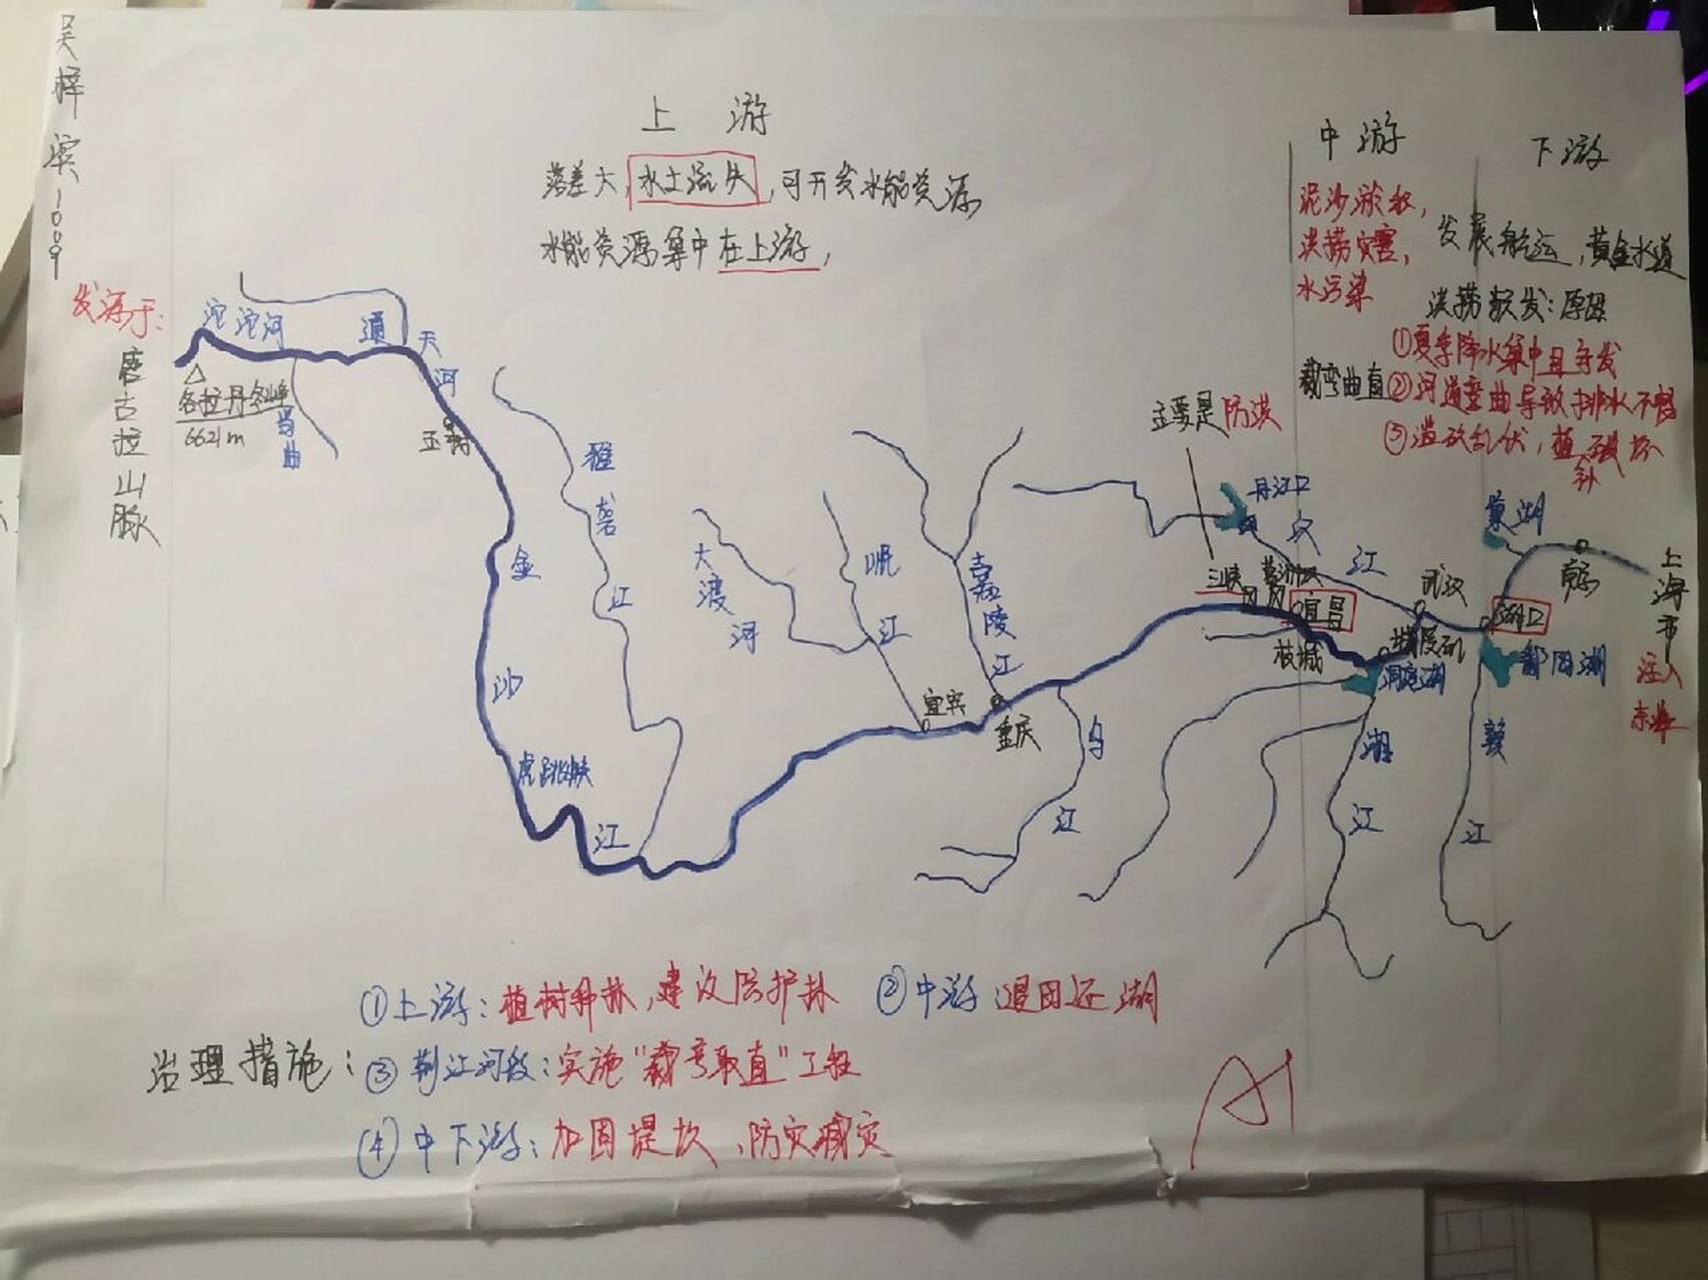 上游
落差大,水土流失,可开发水能资源
水能资源集中在上游,
中游
泥沙淤积,
洪捞灾害,
水污染
下游
发展航运,黄金水道
洪捞频发:原因
①夏季降水集中且多发
裁弯曲直
②河道弯曲导致排水不畅
③滥砍乱伐,植被破坏
发源于:
唐古拉山脉
沱沱河
各拉丹冬峰
6621m
当曲
通天河
玉树
金沙江
虎跳峡
雅砻江
大渡河
岷江
宜宾
嘉陵江
重庆
乌江
主要是防洪
三峡
葛洲坝
宜昌
枝城
丹江口
汉江
武汉
城陵矶
洞庭湖
湘江
湖口
鄱阳湖
赣江
巢湖
南京
上海市
注入
东海
治理措施:
①上游:植树种林,建设防护林
②中游:退田还湖
③荆江河段:实施"裁弯取直"工程
④中下游:加固堤坎、防灾减灾